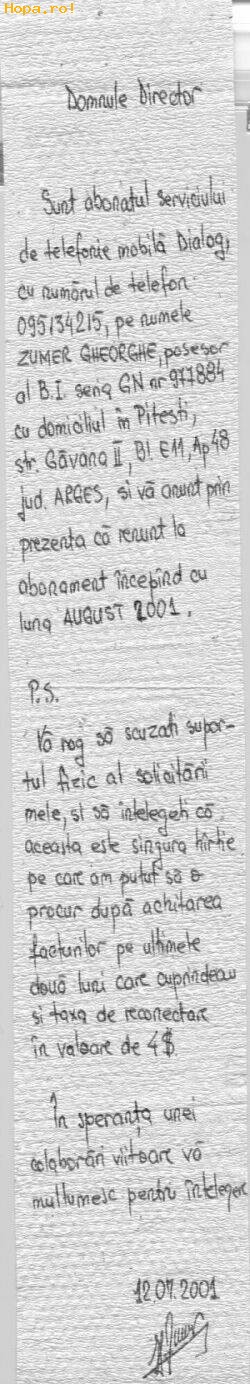 Hopa.ro!
Domnule Director
Sunt abonatul serviciului
de telefonie mobilă Dialog,
cu numărul de telefon
095134215, pe numele
ZUMER GHEORGHE, posesor
al B.I. seria GN nr 977884
cu domiciliul în Pitești,
str. Găvana II, Bl. E11, Ap 48
jud. ARGEȘ, și vă anunț prin
prezenta că renunț la
abonament începînd cu
luna AUGUST 2001.
P.S.
Vă rog să scuzați supor-
tul fizic al solicitării
mele, și să înțelegeți că
aceasta este singura hîrtie
pe care am putut să o
procur după achitarea
facturilor pe ultimele
două luni care cuprindeau
și taxa de reconectare
în valoare de 4$
În speranța unei
colaborări viitoare vă
mulțumesc pentru înțelegere
12.07.2001